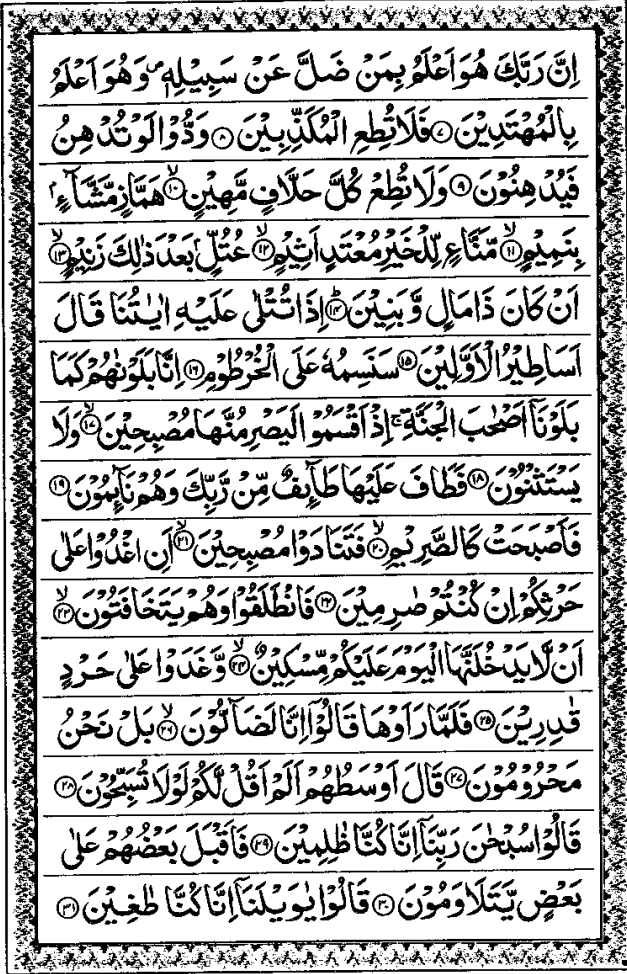 اِنَّ رَبَّكَ هُوَ اَعْلَمُ بِمَنْ ضَلَّ عَنْ سَبِيْلِهٖ۪ وَهُوَ اَعْلَمُ
بِالْمُهْتَدِيْنَ ﴿۷﴾ فَلَا تُطِعِ الْمُكَذِّبِيْنَ ﴿۸﴾ وَدُّوْا لَوْ تُدْهِنُ
فَيُدْهِنُوْنَ ﴿۹﴾ وَلَا تُطِعْ كُلَّ حَلَّافٍ مَّهِيْنٍ ﴿۱۰﴾ۙ هَمَّازٍ مَّشَّآءٍۭ
بِنَمِيْمٍ ﴿۱۱﴾ۙ مَّنَّاعٍ لِّلْخَيْرِ مُعْتَدٍ اَثِيْمٍ ﴿۱۲﴾ۙ عُتُلٍّۭ بَعْدَ ذٰلِكَ زَنِيْمٍ ﴿۱۳﴾ۙ
اَنْ كَانَ ذَا مَالٍ وَّبَنِيْنَ ﴿۱۴﴾ؕ اِذَا تُتْلٰى عَلَيْهِ اٰيٰتُنَا قَالَ
اَسَاطِيْرُ الْاَوَّلِيْنَ ﴿۱۵﴾ سَنَسِمُهٗ عَلَى الْخُرْطُوْمِ ﴿۱۶﴾ اِنَّا بَلَوْنٰهُمْ كَمَا
بَلَوْنَاۤ اَصْحٰبَ الْجَنَّةِ ۚ اِذْ اَقْسَمُوْا لَيَصْرِمُنَّهَا مُصْبِحِيْنَ ﴿۱۷﴾ۙ وَلَا
يَسْتَثْنُوْنَ ﴿۱۸﴾ فَطَافَ عَلَيْهَا طَآئِفٌ مِّنْ رَّبِّكَ وَهُمْ نَآئِمُوْنَ ﴿۱۹﴾
فَاَصْبَحَتْ كَالصَّرِيْمِ ﴿۲۰﴾ۙ فَتَنَادَوْا مُصْبِحِيْنَ ﴿۲۱﴾ۙ اَنِ اغْدُوْا عَلٰى
حَرْثِكُمْ اِنْ كُنْتُمْ صٰرِمِيْنَ ﴿۲۲﴾ فَانْطَلَقُوْا وَهُمْ يَتَخَافَتُوْنَ ﴿۲۳﴾ۙ
اَنْ لَّا يَدْخُلَنَّهَا الْيَوْمَ عَلَيْكُمْ مِّسْكِيْنٌ ﴿۲۴﴾ۙ وَّغَدَوْا عَلٰى حَرْدٍ
قٰدِرِيْنَ ﴿۲۵﴾ فَلَمَّا رَاَوْهَا قَالُوْۤا اِنَّا لَضَآلُّوْنَ ﴿۲۶﴾ۙ بَلْ نَحْنُ
مَحْرُوْمُوْنَ ﴿۲۷﴾ قَالَ اَوْسَطُهُمْ اَلَمْ اَقُلْ لَّكُمْ لَوْلَا تُسَبِّحُوْنَ ﴿۲۸﴾
قَالُوْا سُبْحٰنَ رَبِّنَاۤ اِنَّا كُنَّا ظٰلِمِيْنَ ﴿۲۹﴾ فَاَقْبَلَ بَعْضُهُمْ عَلٰى
بَعْضٍ يَّتَلَاوَمُوْنَ ﴿۳۰﴾ قَالُوْا يٰوَيْلَنَاۤ اِنَّا كُنَّا طٰغِيْنَ ﴿۳۱﴾